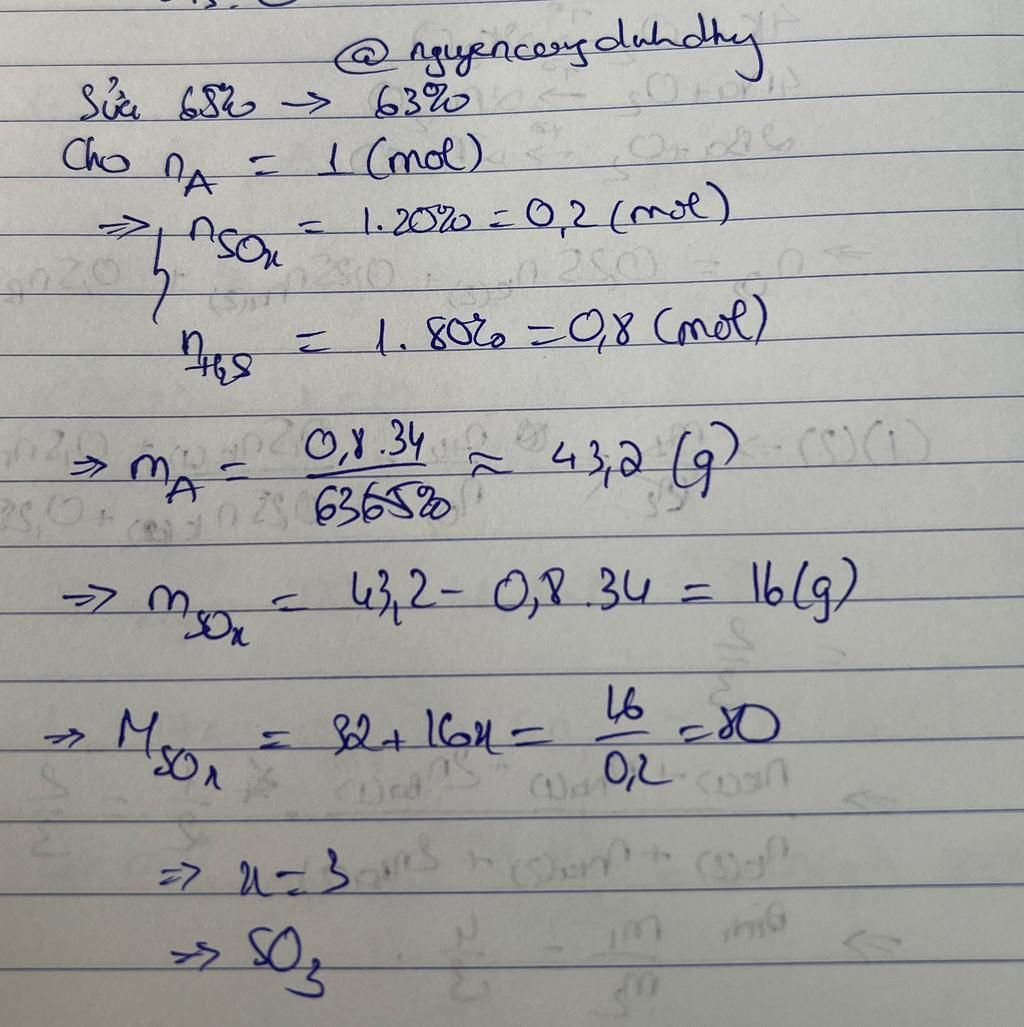 @nguyencongduhdhy
Sửa 65% → 63%
Cho n_A = 1 (mol)
⇒ { n_SOx = 1.20% = 0,2 (mol)
n_H2S = 1.80% = 0,8 (mol)
⇒ m_A = 0,8.34 / 63,65% ≈ 43,2 (g)
⇒ m_SOx = 43,2 - 0,8.34 = 16 (g)
⇒ M_SOx = 32 + 16x = 16 / 0,2 = 80
⇒ x = 3
⇒ SO3